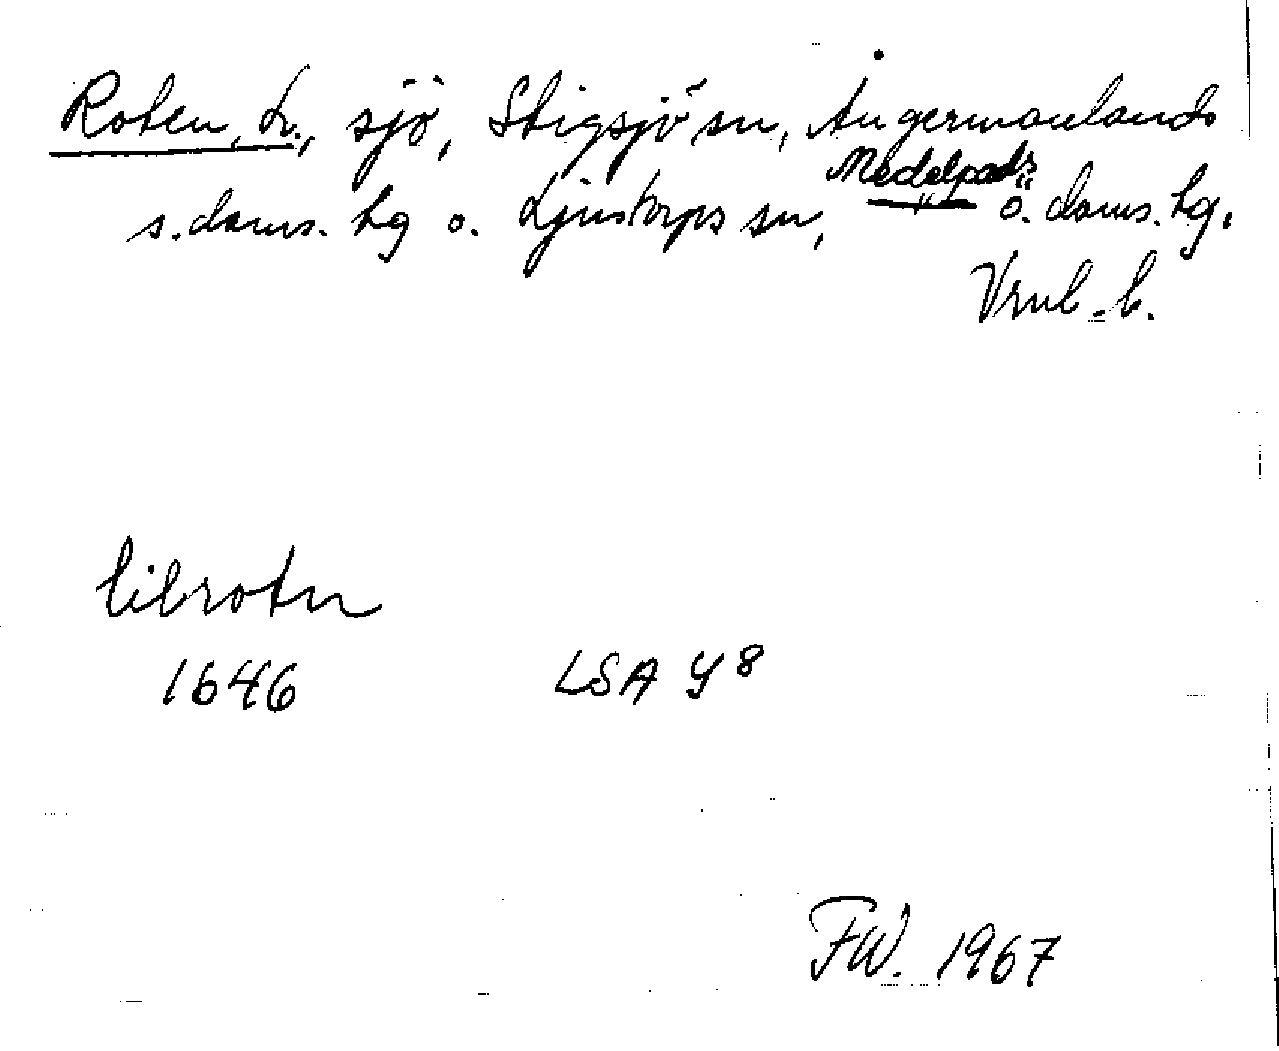 Roten, L., sjö, Stigsjö sn, Ångermanlands
s. doms. hg o. Ljustorps sn, Medelpads ö. doms. hg.
Vrnl. l.
lilrotn
1646 LSA Y8
FW. 1967